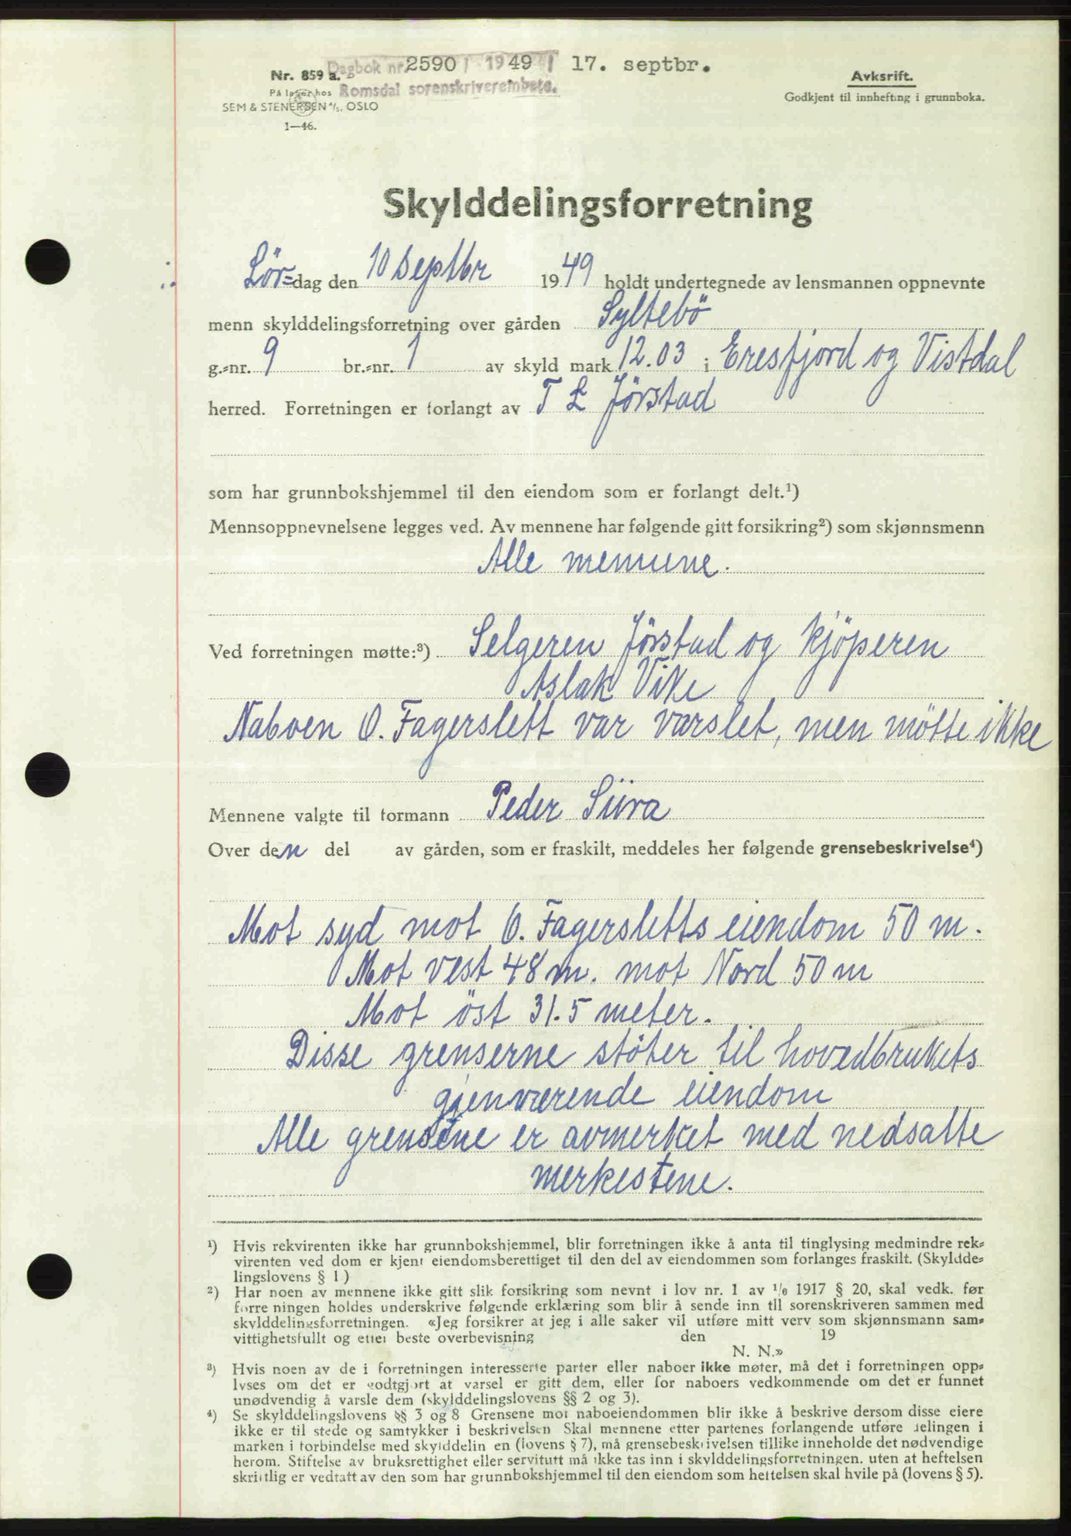 Nr. 859 a.
På lager hos
SEM & STENERSEN A/S. OSLO
1—46.
Dagbok nr. 2590 / 1949 / 17. septbr.
Romsdal sorenskriverembete.
Avksrift.
Godkjent til innhefting i grunnboka.
Skylddelingsforretning
Lör=dag den 10 Septbr 1949 holdt undertegnede av lensmannen oppnevnte
menn skylddelingsforretning over gården Syltebö
g.=nr. 9 br.=nr. 1 av skyld mark 12.03 i Eresfjord og Vistdal
herred. Forretningen er forlangt av T L Jörstad
som har grunnbokshjemmel til den eiendom som er forlangt delt.¹)
Mennsoppnevnelsene legges ved. Av mennene har følgende gitt forsikring²) som skjønnsmenn
Alle mennene.
Ved forretningen møtte:³) Selgeren Jörstad og kjöperen
Aslak Vike
Naboen O. Fagerslett var varslet, men mötte ikke
Mennene valgte til formann Peder Siira
Over den del av gården, som er fraskilt, meddeles her følgende grensebeskrivelse⁴)
Mot syd mot O. Fagersletts eiendom 50 m.
Mot vest 48 m. mot Nord 50 m
Mot öst 31.5 meter.
Disse grenserne stöter til hovedbrukets
gjenværende eiendom
Alle grensene er avmerket med nedsatte
merkestene.
¹) Hvis rekvirenten ikke har grunnbokshjemmel, blir forretningen ikke å anta til tinglysing medmindre rek=
virenten ved dom er kjent eiendomsberettiget til den del av eiendommen som forlanges fraskilt. (Skyldde=
lingslovens § 1)
²) Har noen av mennene ikke gitt slik forsikring som nevnt i lov nr. 1 av 1/6 1917 § 20, skal vedk. før
forretningen holdes underskrive følgende erklæring som blir å sende inn til sorenskriveren sammen med
skylddelingsforretningen. «Jeg forsikrer at jeg i alle saker vil utføre mitt verv som skjønnsmann sam=
vittighetsfullt og etter beste overbevisning den 19
N. N.»
³) Hvis noen av de i forretningen interesserte parter eller naboer ikke møter, må det i forretningen opp=
lyses om det er godtgjort at varsel er gitt dem, eller for naboers vedkommende om det er funnet
unødvendig å varsle dem (skylddelingslovens §§ 2 og 3).
⁴) Se skylddelingslovens §§ 3 og 8 Grensene mot naboeiendommen blir ikke å beskrive dersom disse eiere
ikke er til stede og samtykker i beskrivelsen Skal mennene etter partenes forlangende utføre delingen i
marken i forbindelse med skylddelingen (lovens § 7), må grensebeskrivelsen tillike inneholde det nødvendige
herom. Stiftelse av bruksrettighet eller servitutt må ikke tas inn i skylddelingsforretningen, uten at heftelsen
skriftlig er vedtatt av den som har grunnbokshjemmel til den eiendom som heftelsen skal hvile på (lovens § 5).